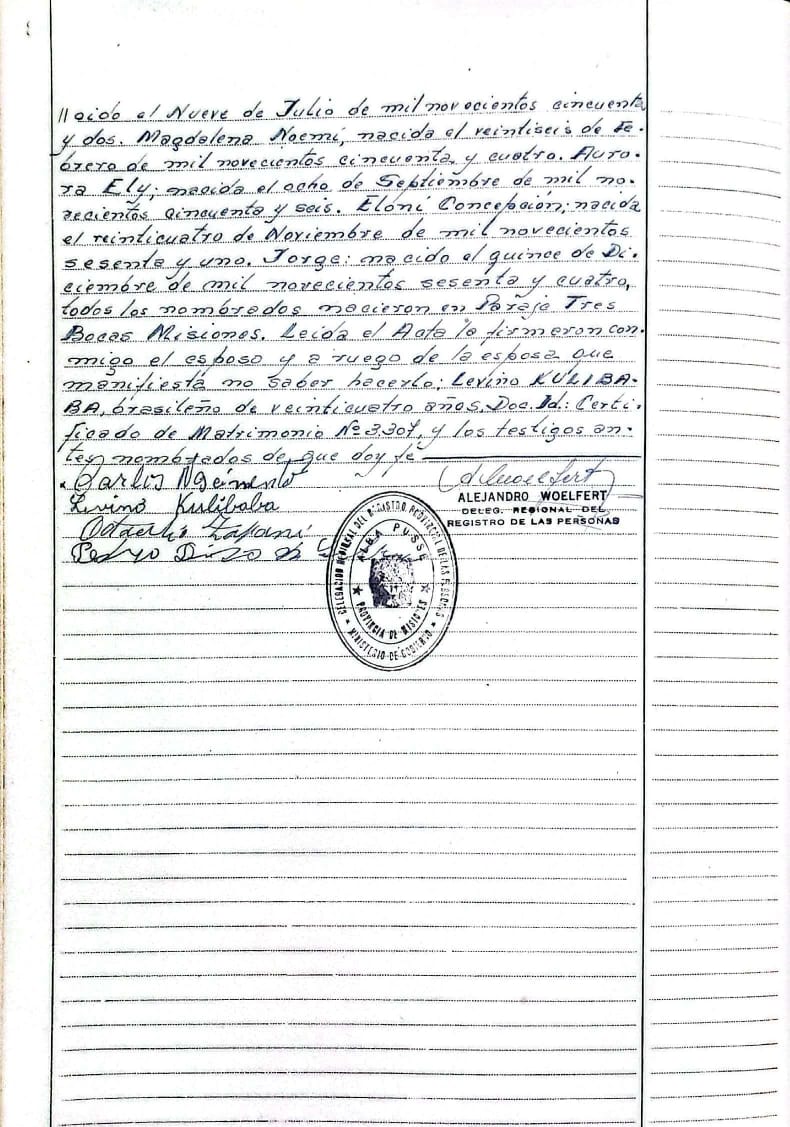 //cido el Nueve de Julio de mil novecientos cincuenta
y dos. Magdalena Noemí, nacida el veintiseis de Fe-
brero de mil novecientos cincuenta, y cuatro. Auro-
ra Ely; nacida el ocho de Septiembre de mil no-
vecientos cincuenta y seis. Eloní Concepción; nacida
el veinticuatro de Noviembre de mil novecientos
sesenta y uno. Jorge: nacido el quince de Di-
ciembre de mil novecientos sesenta y cuatro,
todos los nombrados nacieron en Paraje Tres
Bocas Misiones. Leida el Acta la firmaron con-
migo el esposo y a ruego de la esposa que
manifiesta no saber hacerlo; Levino KULIBA-
BA, brasileño de veinticuatro años, Doc. Id: Certi-
ficado de Matrimonio Nº 3307, y los testigos an-
tes nombrados de que doy fé
Carlos
Levino Kulibaba
Pedro
ALEJANDRO WOELFERT
DELEG. REGIONAL DEL
REGISTRO DE LAS PERSONAS
DELEGACION REGIONAL DEL REGISTRO PROVINCIAL DE LAS PERSONAS
ALBA POSSE
PROVINCIA DE MISIONES
MINISTERIO DE GOBIERNO